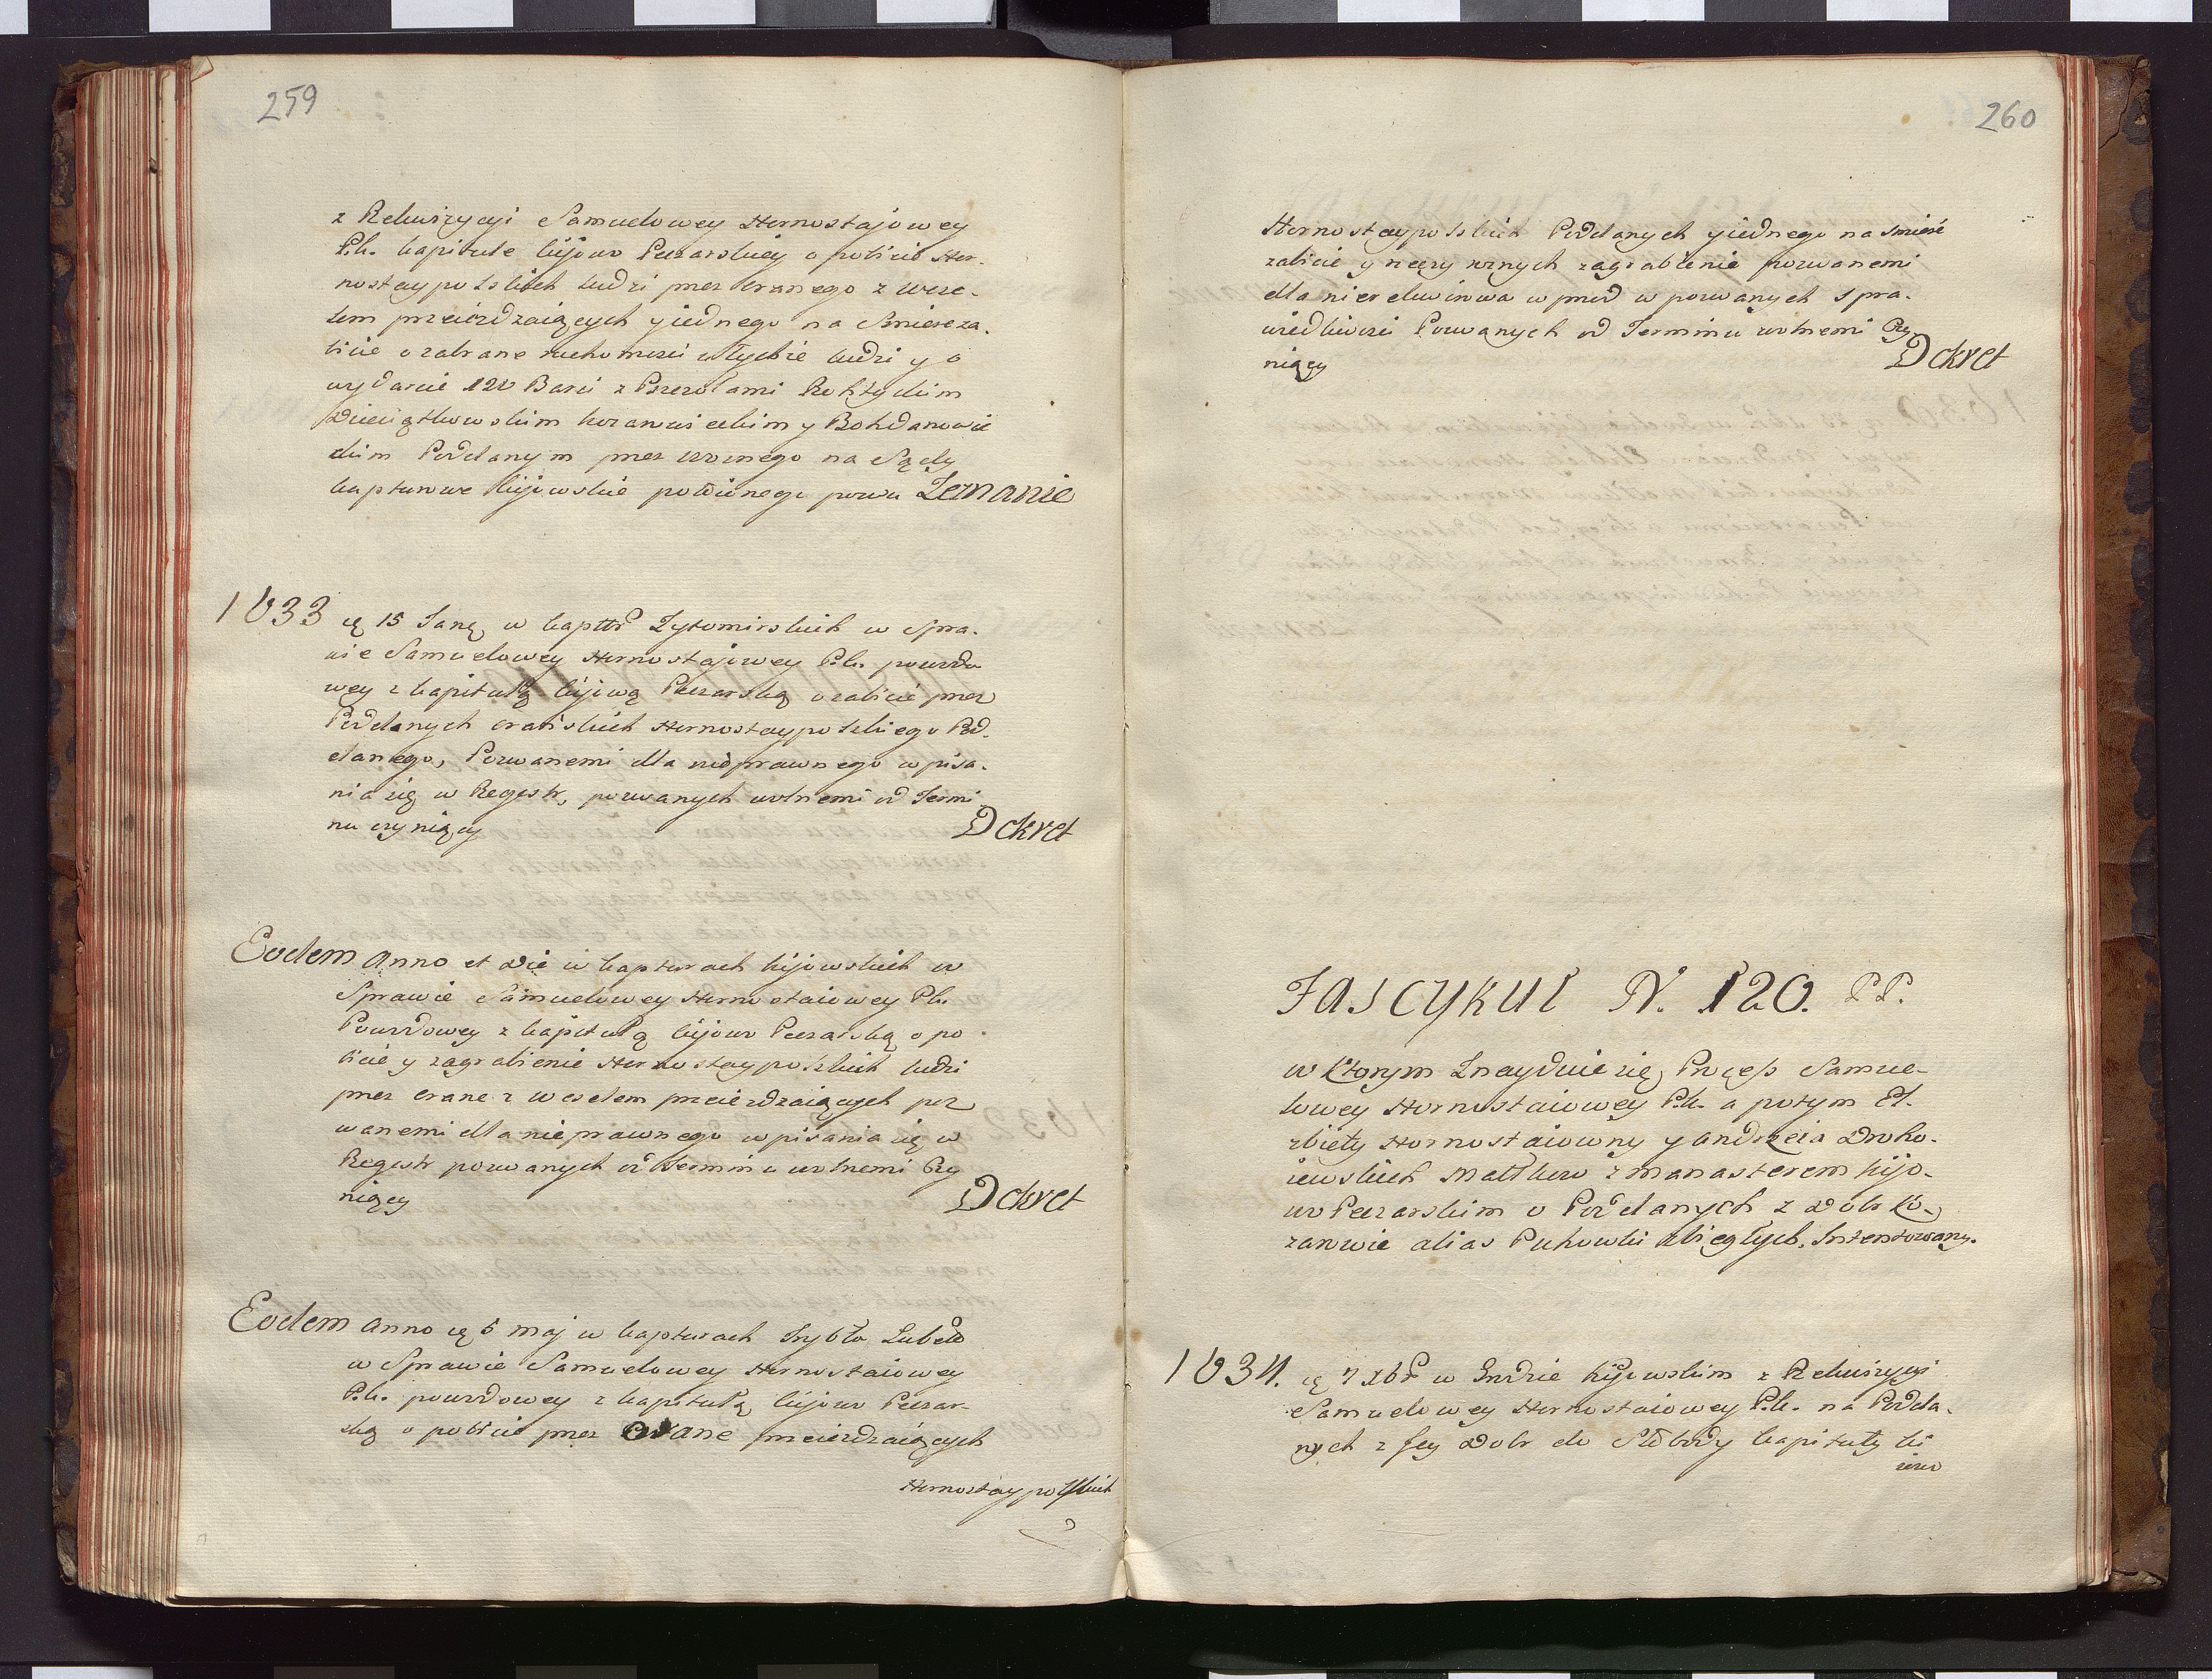 259
z Rekwizycyi Samuelowey Hornostajowey
P.k. kapitule kijowo Peczarskiey o pobicie Hor-
nostaypolskich ludzi przez Oranego z wese-
lem przeieżdzaiących y iednego na Smierć za-
bicie o zabrane ruchomości u tychże ludzi y o
wydarcie 120 Barci z Pszczołami
kozarowickim y Bohdanowic
kim Poddanym przez woznego na Sądy
kapturowe kijowskie położonego pozwu Zeznanie
1633 ię 15 Janę w kapttr Zytomirskich w Spra-
wie Samuelowey Hornostajowey P.k. powodo
wey z kapitułą kijową Peczarską o zabicie przez
Poddanych orańskich Hornostaypolskiego Pod-
danego, Pozwanemi dla nieprawnego wpisa-
nia się w Regestr, pozwanych wolnemi od Termi
nu czyniący Dekret
Eodem Anno et Die w kapturach kijowskich w
Sprawie Samuelowey Hornostaiowey P.k.
Powodowey z kapitułą kijowo Peczarską o po-
bicie y zagrabienie Hornostaypolskich ludzi
przez Orane z weselem przeieżdzaiących poz
wanemi dla nieprawnego wpisania się w
Regestr pozwanych od Terminu wolnemi Czy
niący Dekret
Eodem Anno ię 5 maj w kapturach Trybłu Lubelo
w Sprawie Samuelowey Hornostaiowey
P.k. powodowey z kapitułą kijowo Peczar-
ską o pobicie przez Orane przeieżdzaiących
Hornostaypolskich
260
Hornostaypolskich Poddanych y iednego na Smierć
zabicie y rzeczy roznych zagrabienie pozwanemi
dla nier w przod w pozwanych spra-
wiedliwości Pozwanych od Terminu wolnemi Czy
niący Dekret
Fascykuł N. 120. PP.
w Którym Znayduie się Process Samue-
lowey Hornostaiowey P.k. a potym El-
zbiety Hornostaiowny y Andrzeia Droho-
iewskich Małłkow z Manasterem kijo-
wo Peczarskim o Poddanych z Dobr Ko-
zarowic alias Puhowki zbiegłych, Intentowany.
1634. ię 7 Xbr w Grodzie Kijowskim z Rekwizycyi
Samuelowey Hornostaiowey P.k. na Podda-
nych z Jey Dobr do Słobody kapituły ki
iowo